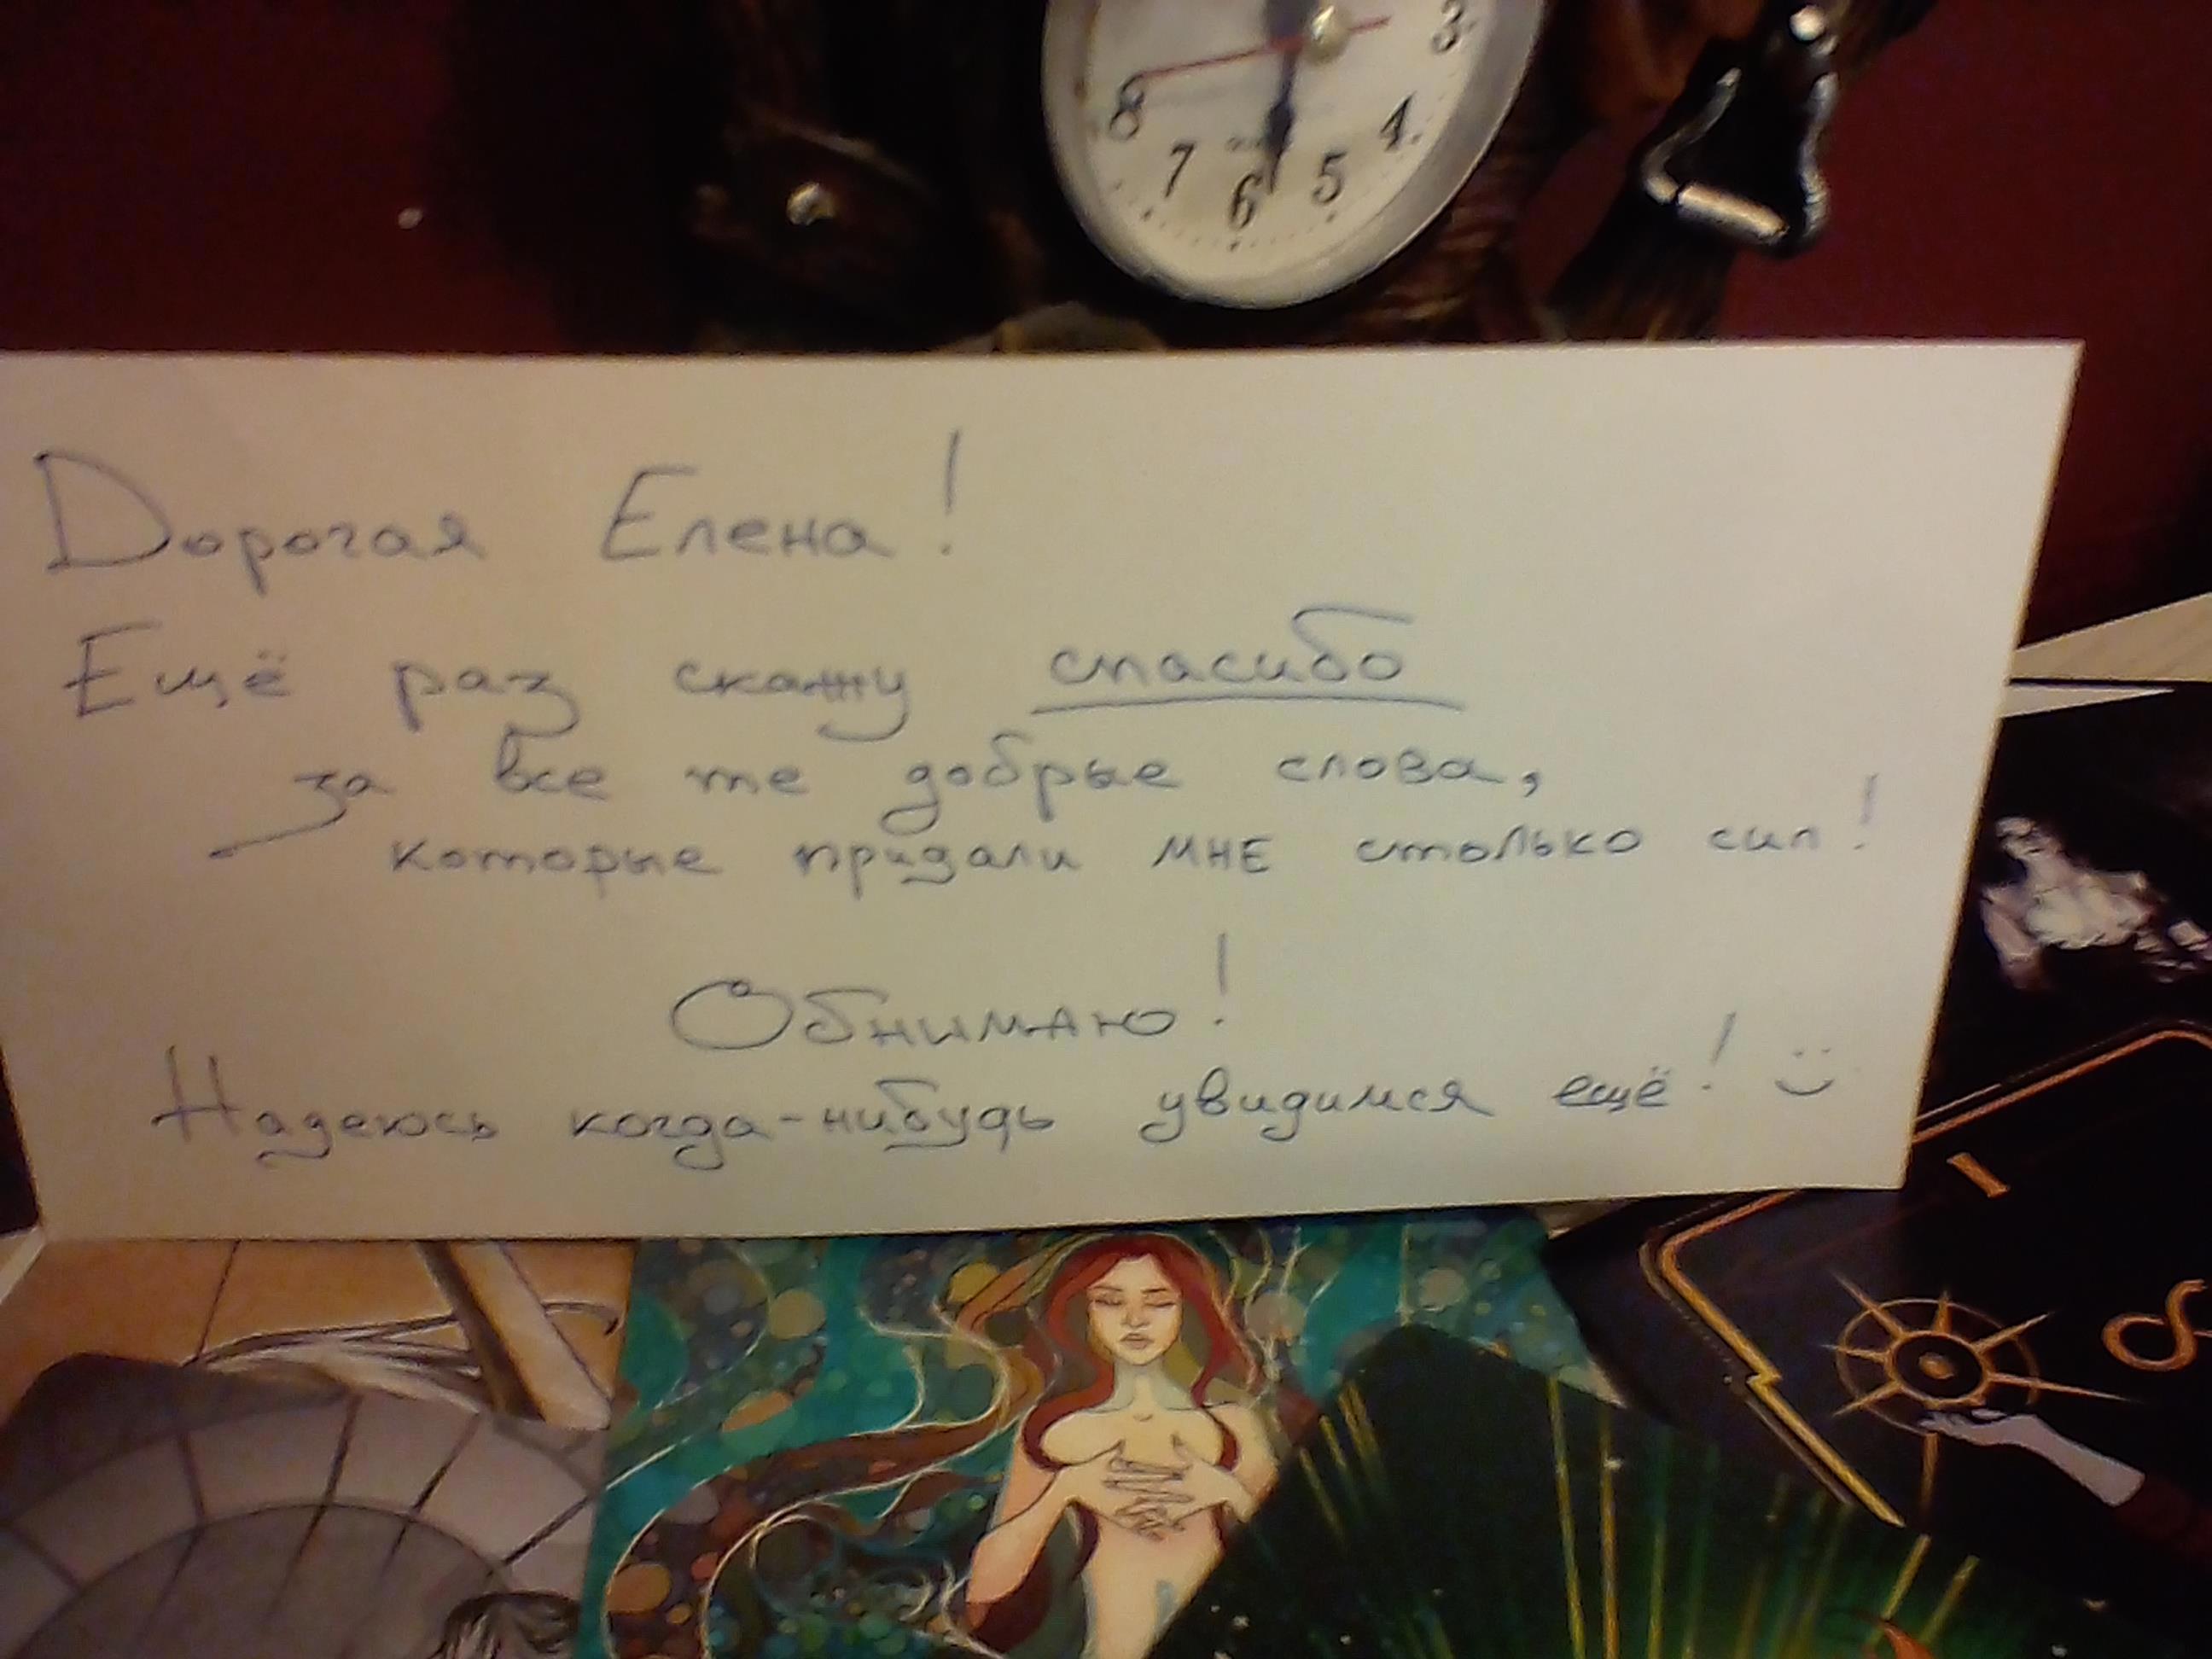 3
4
5
6
7
8
Дорогая Елена!
Ещё раз скажу спасибо
за все те добрые слова,
которые придали мне столько сил!
Обнимаю!
Надеюсь когда-нибудь увидимся ещё! :)
I